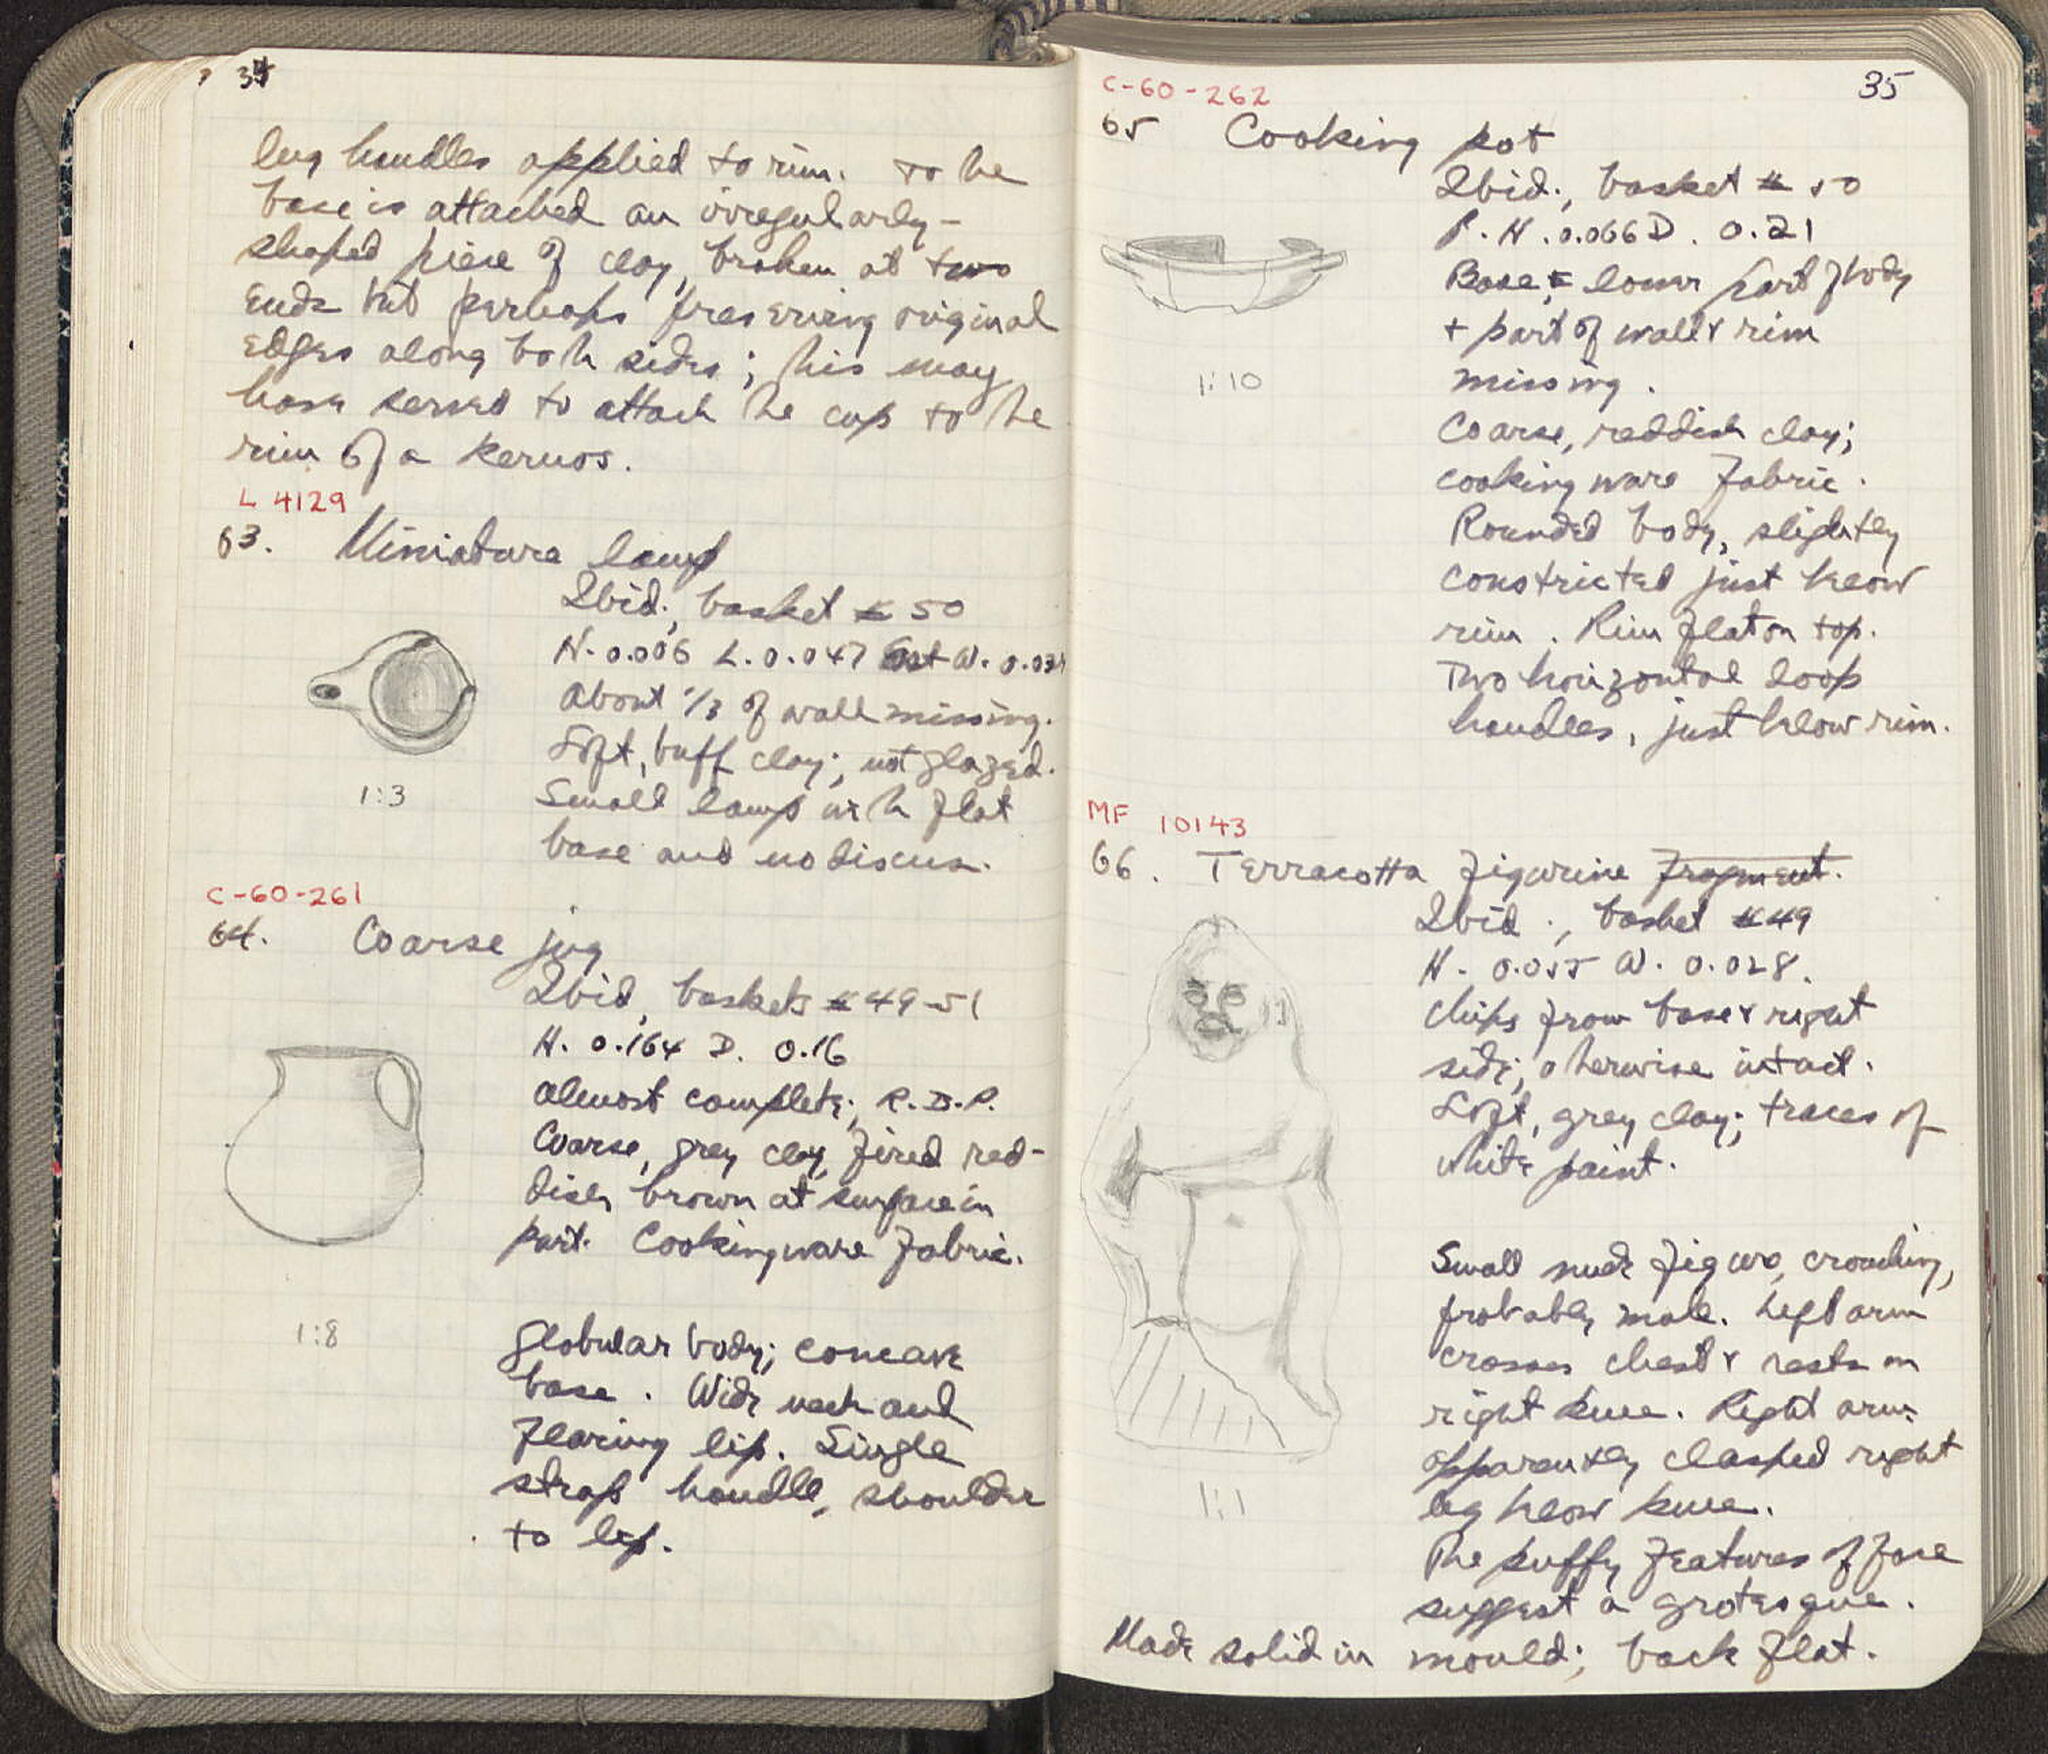 34
lug handles applied to rim. To he
base is attached an irregularly-
shaped piece of clay, broken at two
ends but perhaps preserving original
edges along both sides; his may
have served to attach he cup to he
rim of a kernos.
L 4129
63. Miniature lamp
Ibid., basket # 50
H. 0.006 L. 0.047 W. 0.034
About 1/3 of wall missing.
Soft, buff clay; not glazed.
Small lamp with flat
base and no discus.
1:3
C-60-261
64. Coarse jug
Ibid, baskets # 49-51
H. 0.164 D. 0.16
Almost complete; R.D.P.
Coarse, grey clay, fired red-
dish brown at surface in
part. Cooking ware fabric.
1:8
Globular body; concave
base. Wide neck and
flaring lip. Single
strap handle, shoulder
to lip.
35
C-60-262
65 Cooking pot
Ibid., basket # 50
P.H. 0.066 D. 0.21
Base & lower part of body
+ part of wall & rim
missing.
1:10
Coarse, reddish clay;
cooking ware fabric.
Rounded body, slightly
constricted just below
rim. Rim flat on top.
Two horizontal loop
handles, just below rim.
MF 10143
66. Terracotta figurine fragment.
Ibid., basket #49
H. 0.055 W. 0.028.
Chips from base & right
side; otherwise intact.
Soft, grey clay; traces of
white paint.
Small nude figure, crouching,
probably male. Left arm
crosses chest & rests on
right knee. Right arm
apparently clasped right
leg below knee.
1:1
The puffy features of face
suggest a grotesque.
Made solid in mould; back flat.